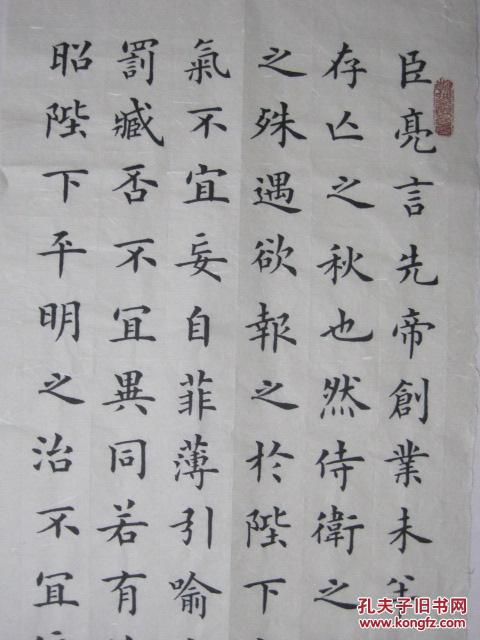 臣亮言先帝創業未半
存亡之秋也然侍衛之
之殊遇欲報之於陛下
氣不宜妄自菲薄引喻
罰臧否不宜異同若有
昭陛下平明之治不宜
孔夫子旧书网